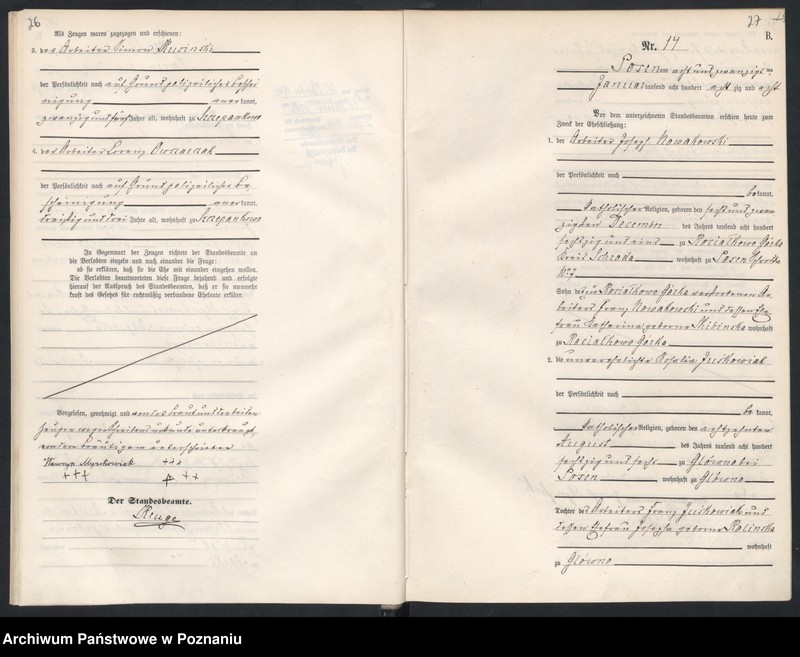 26
Als Zeugen waren zugezogen und erschienen:
3. der Arbeiter Simon Rusinski
der Persönlichkeit nach auf Grund polizeilicher Beschei
nigung anerkannt,
zwanzig und fünf Jahre alt, wohnhaft zu Szczepankowo
4. der Arbeiter Lorenz Owczarzak
der Persönlichkeit nach auf Grund polizeilicher Be-
scheinigung anerkannt,
dreißig und drei Jahre alt, wohnhaft zu Szczepankowo
In Gegenwart der Zeugen richtete der Standesbeamte an
die Verlobten einzeln und nach einander die Frage:
ob sie erklären, daß sie die Ehe mit einander eingehen wollen.
Die Verlobten beantworteten diese Frage bejahend und erfolgte
hierauf der Ausspruch des Standesbeamten, daß er sie nunmehr
kraft des Gesetzes für rechtmäßig verbundene Eheleute erkläre.
Vorgelesen, genehmigt und von der Braut und den beiden
Zeugen wegen Schreibens unkunde unterkreuzt,
von dem Bräutigam unterschrieben
Wawrzyn +++
+++ +++
Der Standesbeamte.
Kruge
27
B.
Nr. 17
Posen am acht und zwanzig ten
Januar tausend acht hundert acht zig und acht
Vor dem unterzeichneten Standesbeamten erschien heute zum
Zweck der Eheschließung:
1. der Arbeiter Joseph Nowakowski
der Persönlichkeit nach
be kannt,
katholischer Religion, geboren den sechs und zwan
zigsten December des Jahres tausend acht hundert
sechszig und eins zu Rociatkowo Górka
Kreis Schroda wohnhaft zu Posen
№ 7
Sohn des zu Rociatkowo Górka verstorbenen Ar
beiters Franz Nowakowski und dessen Ehe
frau Katharina geborne Skibinska wohnhaft
zu Rociatkowo Górka
2. die unverehelichte Rosalia Juskowiak
der Persönlichkeit nach
be kannt,
katholischer Religion, geboren den achtzehnten
August des Jahres tausend acht hundert
sechszig und sechs zu Glówno bei
Posen wohnhaft zu Glówno
Tochter des Arbeiters Franz Juskowiak und
dessen Ehefrau Josepha geborne Rolinska
wohnhaft
zu Glówno
Archiwum Państwowe w Poznaniu